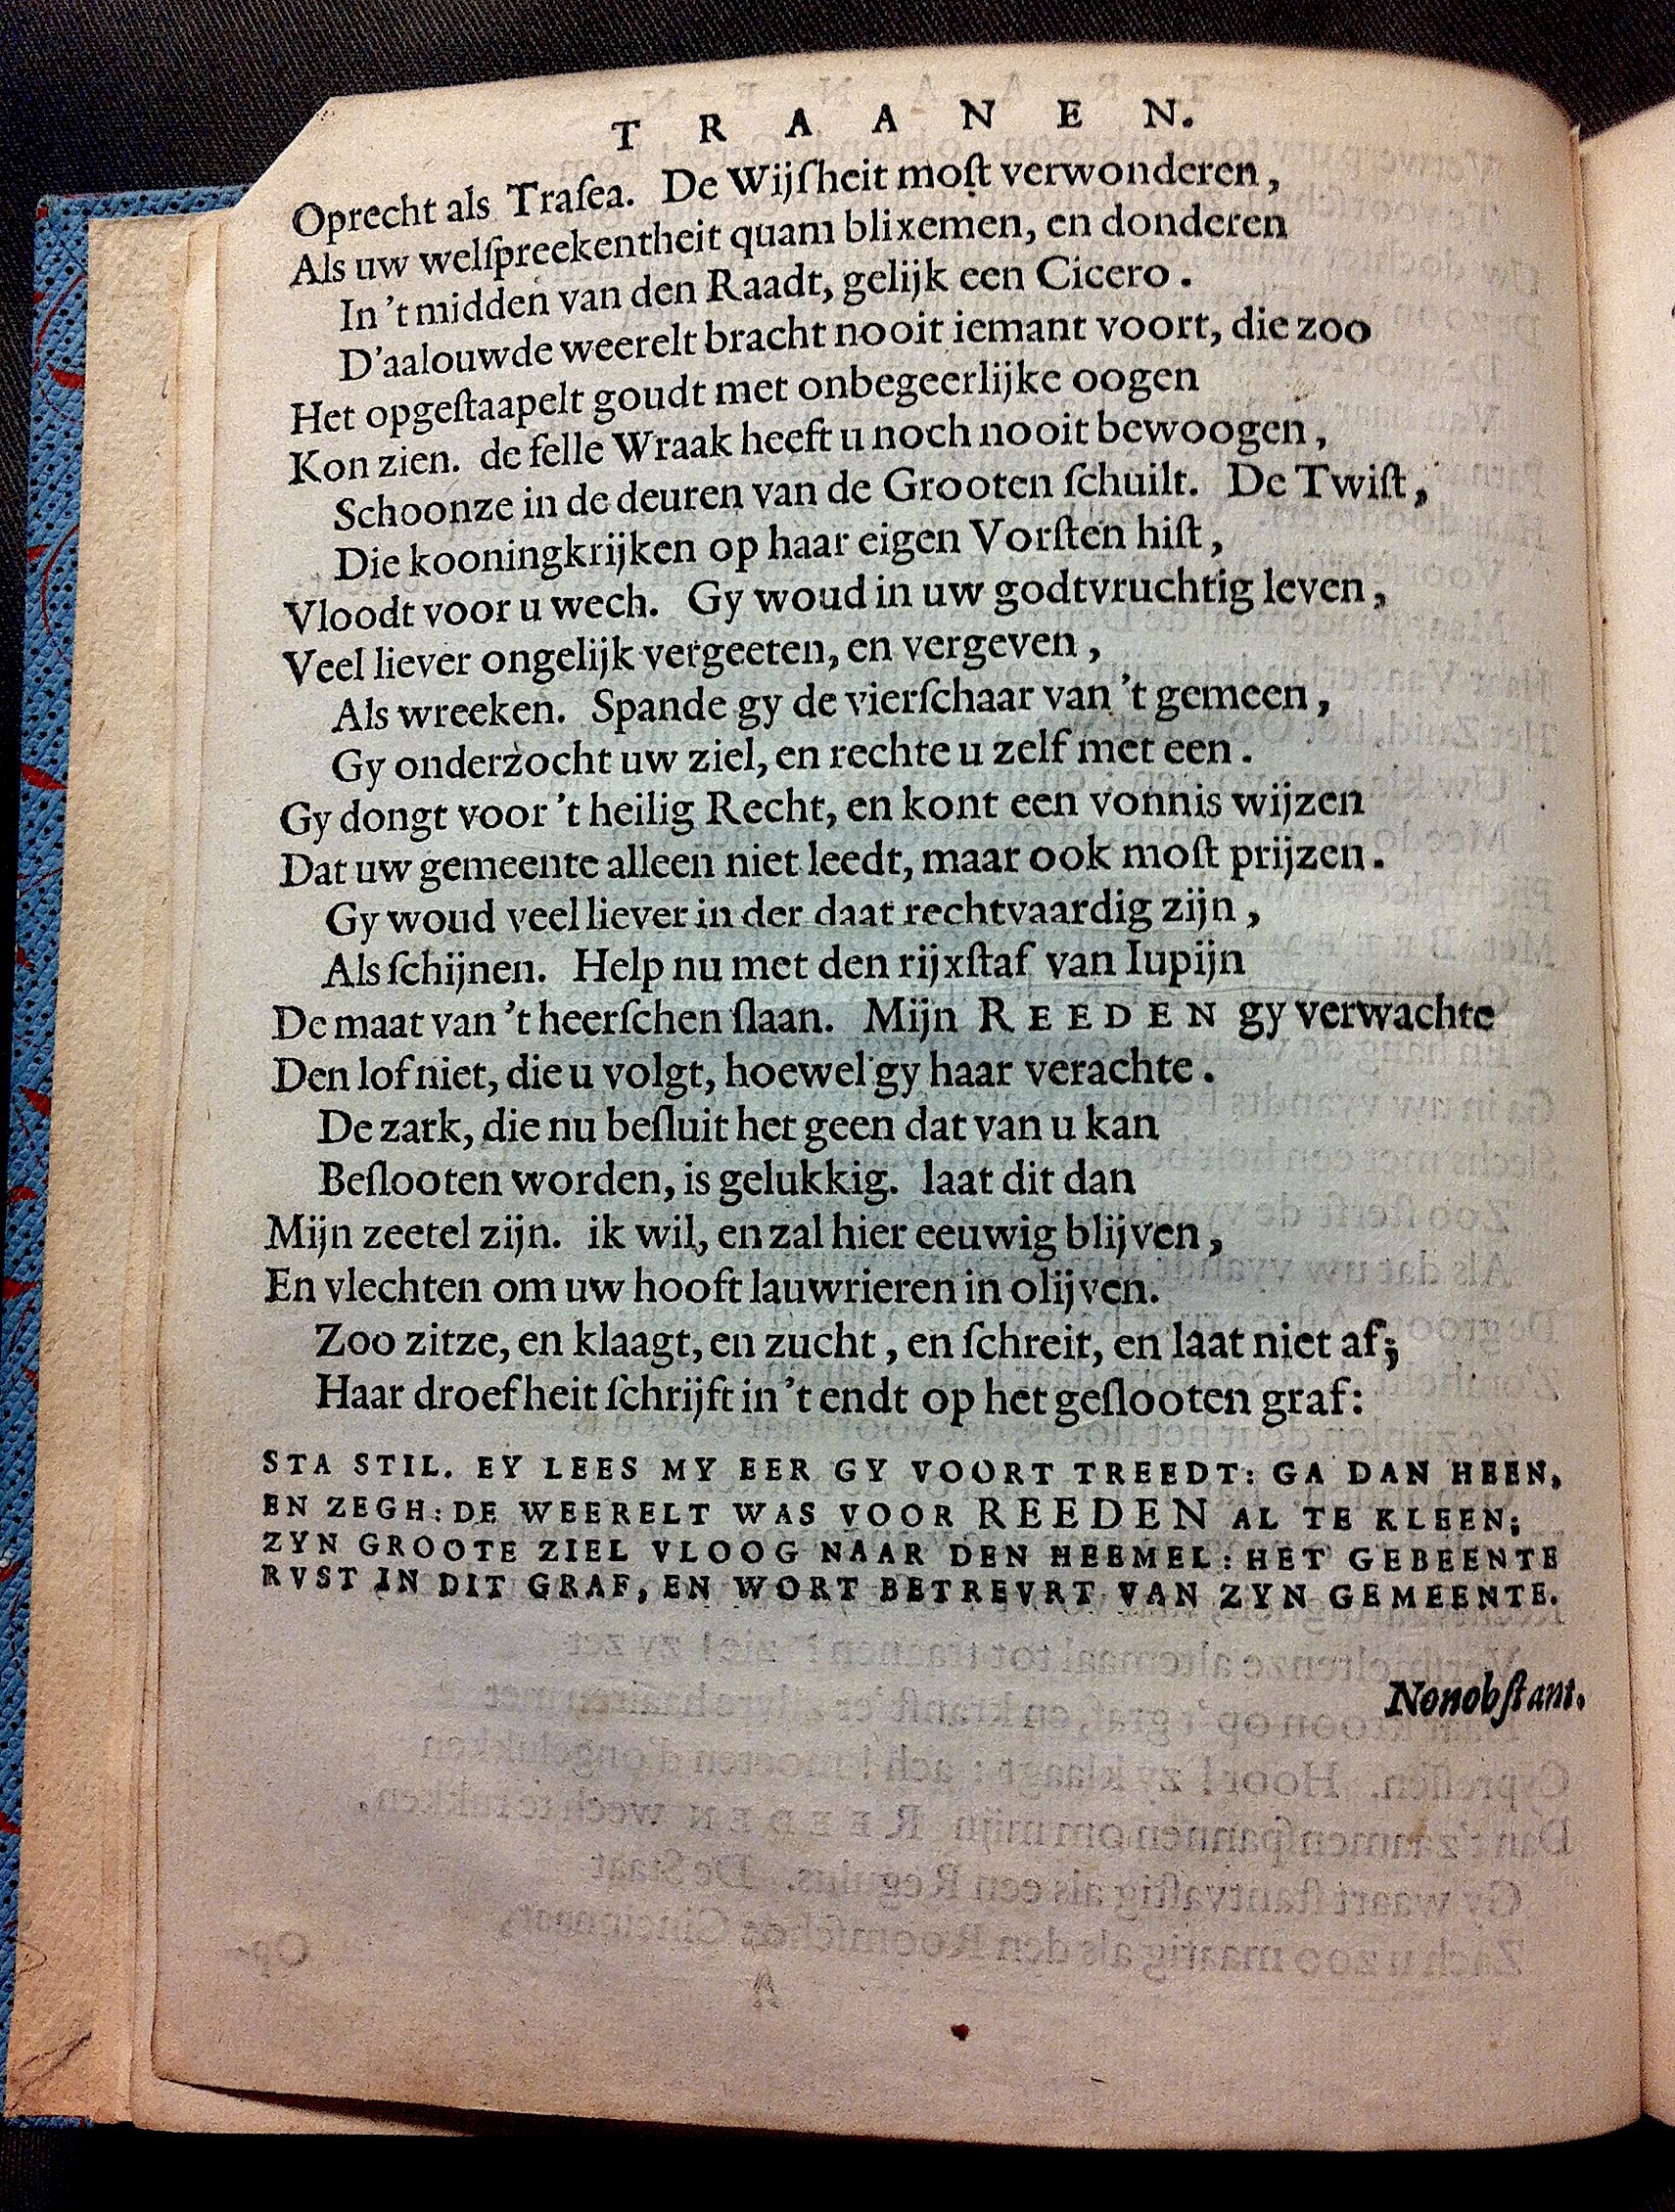 TRAANEN.
Oprecht als Traſea. De Wijſheit moſt verwonderen,
Als uw welſpreekentheit quam blixemen, en donderen
In 't midden van den Raadt, gelijk een Cicero.
D'aalouwde weerelt bracht nooit iemant voort, die zoo
Het opgeſtaapelt goudt met onbegeerlijke oogen
Kon zien. de felle Wraak heeft u noch nooit bewoogen,
Schoonze in de deuren van de Grooten ſchuilt. De Twiſt,
Die kooningkrijken op haar eigen Vorſten hiſt,
Vloodt voor u wech. Gy woud in uw godtvruchtig leven,
Veel liever ongelijk vergeeten, en vergeven,
Als wreeken. Spande gy de vierſchaar van 't gemeen,
Gy onderzocht uw ziel, en rechte u zelf met een.
Gy dongt voor 't heilig Recht, en kont een vonnis wijzen
Dat uw gemeente alleen niet leedt, maar ook moſt prijzen.
Gy woud veel liever in der daat rechtvaardig zijn,
Als ſchijnen. Help nu met den rijxſtaf van Iupijn
De maat van 't heerſchen ſlaan. Mijn REEDEN gy verwachte
Den lof niet, die u volgt, hoewel gy haar verachte.
De zark, die nu beſluit het geen dat van u kan
Beſlooten worden, is gelukkig. laat dit dan
Mijn zeetel zijn. ik wil, en zal hier eeuwig blijven,
En vlechten om uw hooft lauwrieren in olijven.
Zoo zitze, en klaagt, en zucht, en ſchreit, en laat niet af;
Haar droefheit ſchrijft in 't endt op het geſlooten graf:
STA STIL. EY LEES MY EER GY VOORT TREEDT: GA DAN HEEN,
EN ZEGH: DE WEERELT WAS VOOR REEDEN AL TE KLEEN;
ZYN GROOTE ZIEL VLOOG NAAR DEN HEEMEL: HET GEBEENTE
RVST IN DIT GRAF, EN WORT BETREVRT VAN ZYN GEMEENTE.
Nonobſtant.